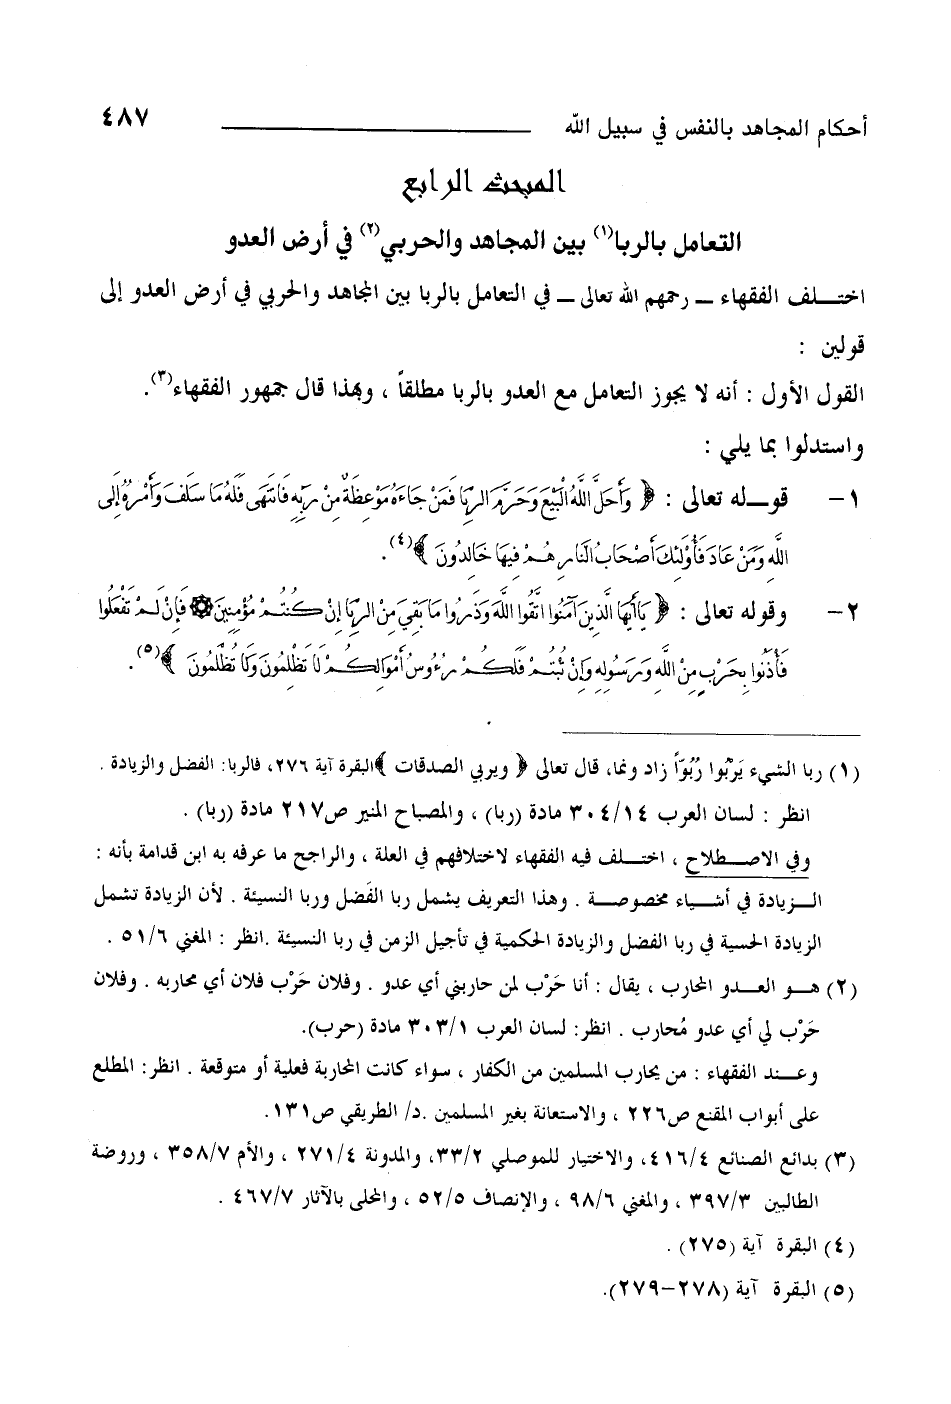 أحكام المجاهد بالنفس في سبيل الله ٤٨٧
المبحث الرابع
التعامل بالربا(١) بين المجاهد والحربي(٢) في أرض العدو
اختلف الفقهاء – رحمهم الله تعالى – في التعامل بالربا بين المجاهد والحربي في أرض العدو إلى
قولين :
القول الأول : أنه لا يجوز التعامل مع العدو بالربا مطلقاً ، وبهذا قال جمهور الفقهاء(٣).
واستدلوا بما يلي :
١- قوله تعالى : ﴿ وَأَحَلَّ اللَّهُ الْبَيْعَ وَحَرَّمَ الرِّبَا فَمَنْ جَاءَهُ مَوْعِظَةٌ مِنْ رَبِّهِ فَانتَهَى فَلَهُ مَا سَلَفَ وَأَمْرُهُ إِلَى
اللَّهِ وَمَنْ عَادَ فَأُوْلَئِكَ أَصْحَابُ النَّارِ هُمْ فِيهَا خَالِدُونَ ﴾(٤).
٢- وقوله تعالى : ﴿ يَاأَيُّهَا الَّذِينَ آمَنُوا اتَّقُوا اللَّهَ وَذَرُوا مَا بَقِيَ مِنْ الرِّبَا إِنْ كُنتُمْ مُؤْمِنِينَ۞ فَإِنْ لَمْ تَفْعَلُوا
فَأْذَنُوا بِحَرْبٍ مِنْ اللَّهِ وَرَسُولِهِ وَإِنْ تُبْتُمْ فَلَكُمْ رُءُوسُ أَمْوَالِكُمْ لَا تَظْلِمُونَ وَلَا تُظْلَمُونَ ﴾(٥).
(١) ربا الشيء يَرْبُوا رُبُوّاً زاد ونما، قال تعالى ﴿ ويربي الصدقات ﴾البقرة آية ٢٧٦، فالربا: الفضل والزيادة .
انظر : لسان العرب ٣٠٤/١٤ مادة (ربا) ، والمصباح المنير ص٢١٧ مادة (ربا) .
وفي الاصطلاح ، اختلف فيه الفقهاء لاختلافهم في العلة ، والراجح ما عرفه به ابن قدامة بأنه :
الزيادة في أشياء مخصوصة . وهذا التعريف يشمل ربا الفَضل وربا النسيئة . لأن الزيادة تشمل
الزيادة الحسية في ربا الفضل والزيادة الحكمية في تأجيل الزمن في ربا النسيئة .انظر : المغني ٥١/٦ .
(٢) هو العدو المحارب ، يقال : أنا حَرْب لمن حاربني أي عدو . وفلان حَرْب فلان أي محاربه . وفلان
حَرْب لي أي عدو مُحارب . انظر: لسان العرب ٣٠٣/١ مادة (حرب).
وعند الفقهاء : من يحارب المسلمين من الكفار ، سواء كانت المحاربة فعلية أو متوقعة . انظر: المطلع
على أبواب المقنع ص٢٢٦ ، والاستعانة بغير المسلمين .د/ الطريقي ص١٣١.
(٣) بدائع الصنائع ٤١٦/٤، والاختيار للموصلي ٣٣/٢، والمدونة ٢٧١/٤ ، والأم ٣٥٨/٧ ، وروضة
الطالبين ٣٩٧/٣ ، والمغني ٩٨/٦ ، والإنصاف ٥٢/٥ ، والمحلى بالآثار ٤٦٧/٧ .
(٤) البقرة آية (٢٧٥) .
(٥) البقرة آية (٢٧٨-٢٧٩).